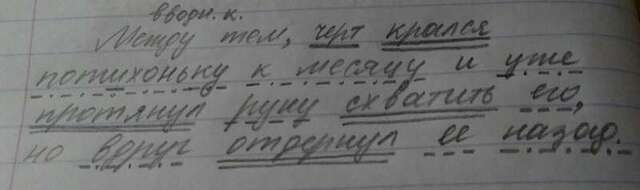 вводн. к.
Между тем, черт крался
потихоньку к месяцу и уже
протянул руку схватить его,
но вдруг отдернул ее назад.